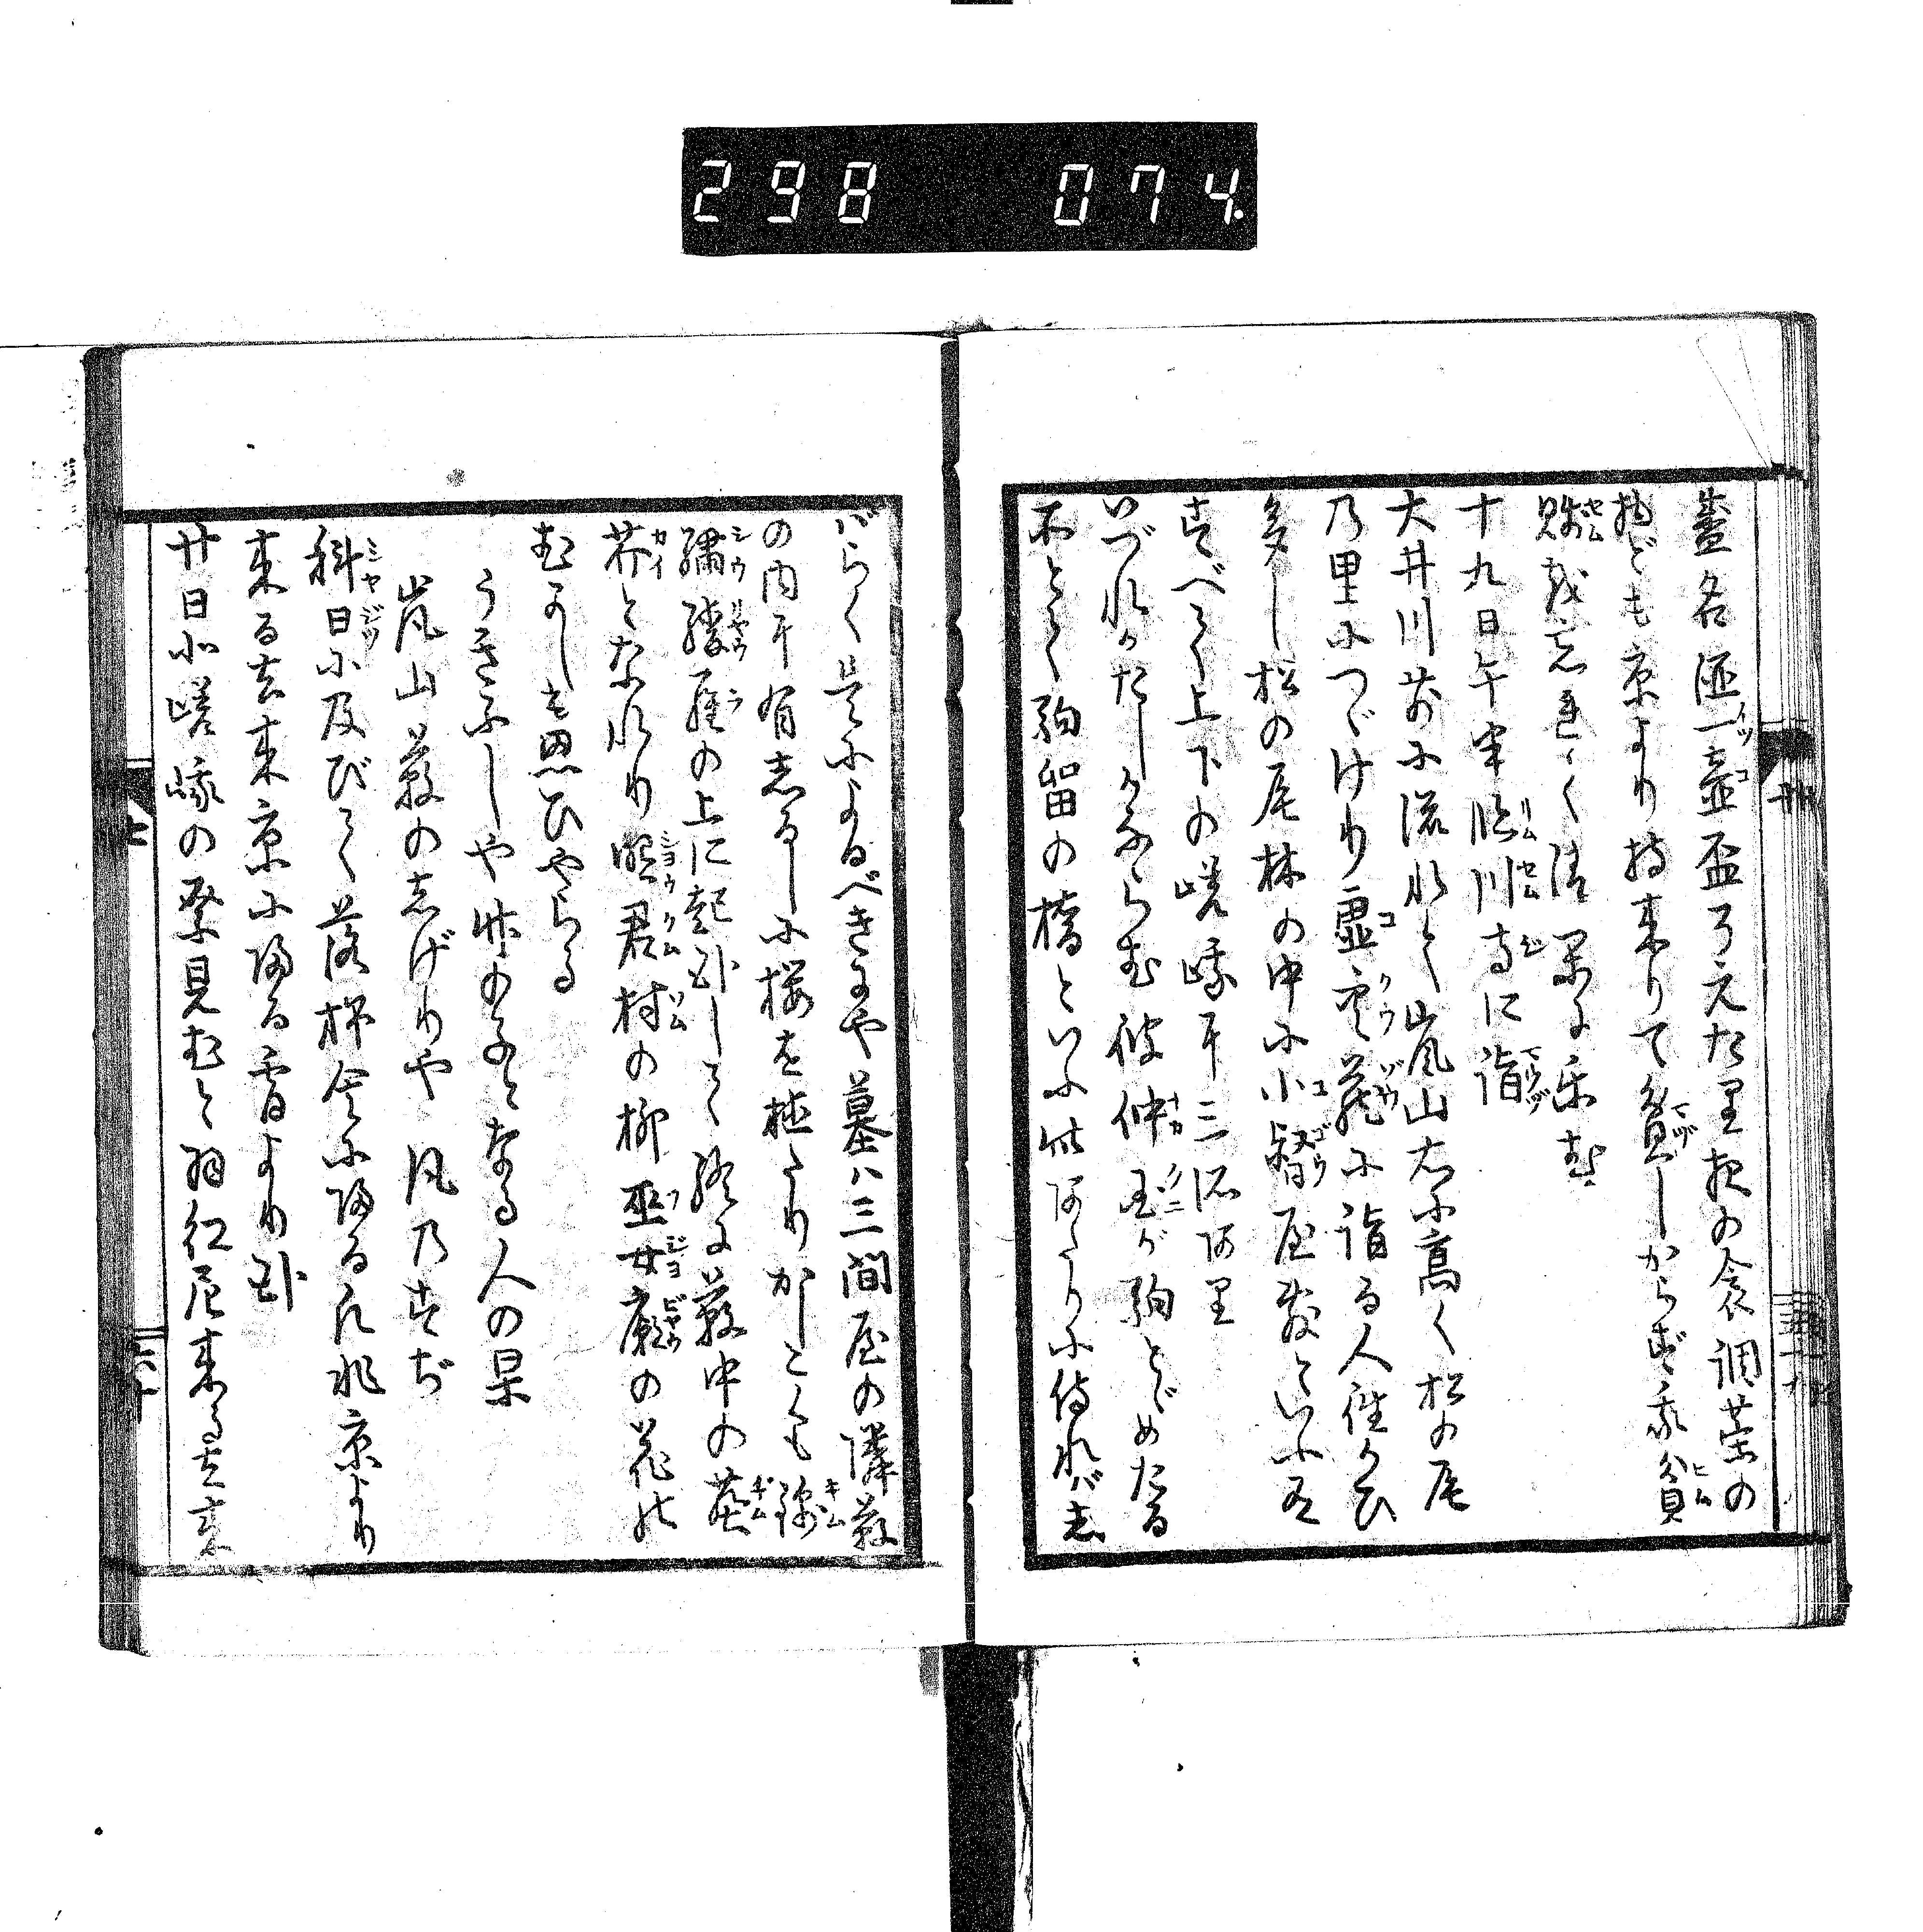 298 074.
盞各酒一壺盃そえたり夜の衾調菜の
物ども京より持来りて貧しからず我貧
賤をわすれて清閑に楽む
十九日午半臨川寺に詣
大井川前に流れて嵐山右に高く松の尾
の里につゞけり虚空蔵に詣る人往かひ
多し松の尾林の中に小督屋敷といふ有
すべて上下の嵯峨に三所あり
いづれかたしかならむ彼仲国が駒とゞめたる
所とて駒留の橋といふ此あたりに侍れバし
バらく是によるべきにや墓ハ三間屋の隣藪
の内に有しるしに桜を植たりかしこくも錦
繍綾羅の上に起臥して終に藪中の塵
芥となれり昭君村の柳巫女廟の花の
むかしも思ひやらる
うきふしや竹の子となる人の果
嵐山藪のしげりや風のすぢ
斜日に及びて落柿舎に帰る凡兆京より
来る去来京に帰る宵より臥
廿日北嵯峨の祭見むと羽紅尼来る去来